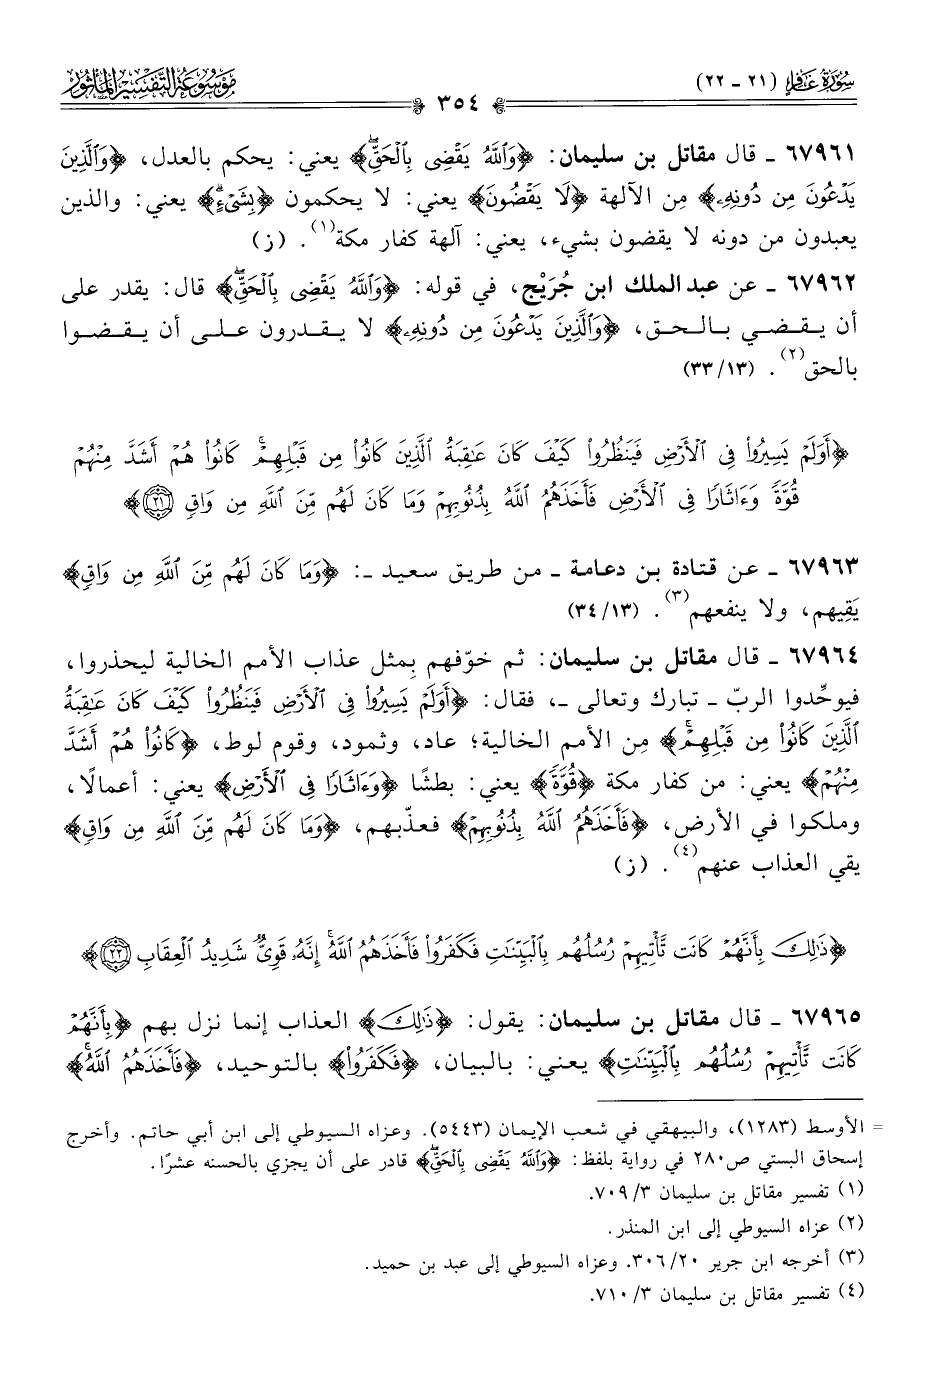 سُورَةُ غَافِرٍ (٢١ - ٢٢)
٣٥٤
مَوْسُوعَةُ التَّفْسِيرِ المَأْثُور
٦٧٩٦١ - قال مقاتل بن سليمان: ﴿وَٱللَّهُ يَقْضِى بِٱلْحَقِّۖ﴾ يعني: يحكم بالعدل، ﴿وَٱلَّذِينَ
يَدْعُونَ مِن دُونِهِۦ﴾ مِن الآلهة ﴿لَا يَقْضُونَ﴾ يعني: لا يحكمون ﴿بِشَىْءٍۗ﴾ يعني: والذين
يعبدون من دونه لا يقضون بشيء، يعني: آلهة كفار مكة(١). (ز)
٦٧٩٦٢ - عن عبد الملك ابن جُرَيْج، في قوله: ﴿وَٱللَّهُ يَقْضِى بِٱلْحَقِّۖ﴾ قال: يقدر على
أن يقضي بالحق، ﴿وَٱلَّذِينَ يَدْعُونَ مِن دُونِهِۦ﴾ لا يقدرون على أن يقضوا
بالحق(٢). (٣٣/١٣)
﴿أَوَلَمْ يَسِيرُوا۟ فِى ٱلْأَرْضِ فَيَنظُرُوا۟ كَيْفَ كَانَ عَـٰقِبَةُ ٱلَّذِينَ كَانُوا۟ مِن قَبْلِهِمْۚ كَانُوا۟ هُمْ أَشَدَّ مِنْهُمْ
قُوَّةً وَءَاثَارًا فِى ٱلْأَرْضِ فَأَخَذَهُمُ ٱللَّهُ بِذُنُوبِهِمْ وَمَا كَانَ لَهُم مِّنَ ٱللَّهِ مِن وَاقٍ ٢١﴾
٦٧٩٦٣ - عن قتادة بن دعامة - من طريق سعيد -: ﴿وَمَا كَانَ لَهُم مِّنَ ٱللَّهِ مِن وَاقٍ﴾
يَقِيهم، ولا ينفعهم(٣). (٣٤/١٣)
٦٧٩٦٤ - قال مقاتل بن سليمان: ثم خوّفهم بِمثل عذاب الأمم الخالية ليحذروا،
فيوحِّدوا الربّ - تبارك وتعالى -، فقال: ﴿أَوَلَمْ يَسِيرُوا۟ فِى ٱلْأَرْضِ فَيَنظُرُوا۟ كَيْفَ كَانَ عَـٰقِبَةُ
ٱلَّذِينَ كَانُوا۟ مِن قَبْلِهِمْۚ﴾ مِن الأمم الخالية؛ عاد، وثمود، وقوم لوط، ﴿كَانُوا۟ هُمْ أَشَدَّ
مِنْهُمْ﴾ يعني: من كفار مكة ﴿قُوَّةً﴾ يعني: بطشًا ﴿وَءَاثَارًا فِى ٱلْأَرْضِ﴾ يعني: أعمالًا،
وملكوا في الأرض، ﴿فَأَخَذَهُمُ ٱللَّهُ بِذُنُوبِهِمْ﴾ فعذّبهم، ﴿وَمَا كَانَ لَهُم مِّنَ ٱللَّهِ مِن وَاقٍ﴾
يقي العذاب عنهم(٤). (ز)
﴿ذَٰلِكَ بِأَنَّهُمْ كَانَت تَّأْتِيهِمْ رُسُلُهُم بِٱلْبَيِّنَـٰتِ فَكَفَرُوا۟ فَأَخَذَهُمُ ٱللَّهُۚ إِنَّهُۥ قَوِىٌّ شَدِيدُ ٱلْعِقَابِ ٢٢﴾
٦٧٩٦٥ - قال مقاتل بن سليمان: يقول: ﴿ذَٰلِكَ﴾ العذاب إنما نزل بهم ﴿بِأَنَّهُمْ
كَانَت تَّأْتِيهِمْ رُسُلُهُم بِٱلْبَيِّنَـٰتِ﴾ يعني: بالبيان، ﴿فَكَفَرُوا۟﴾ بالتوحيد، ﴿فَأَخَذَهُمُ ٱللَّهُۚ﴾
= الأوسط (١٢٨٣)، والبيهقي في شعب الإيمان (٥٤٤٣). وعزاه السيوطي إلى ابن أبي حاتم. وأخرج
إسحاق البستي ص٢٨٠ في رواية بلفظ: ﴿وَٱللَّهُ يَقْضِى بِٱلْحَقِّۖ﴾ قادر على أن يجزي بالحسنه عشرًا.
(١) تفسير مقاتل بن سليمان ٣/ ٧٠٩.
(٢) عزاه السيوطي إلى ابن المنذر.
(٣) أخرجه ابن جرير ٢٠/ ٣٠٦. وعزاه السيوطي إلى عبد بن حميد.
(٤) تفسير مقاتل بن سليمان ٣/ ٧١٠.